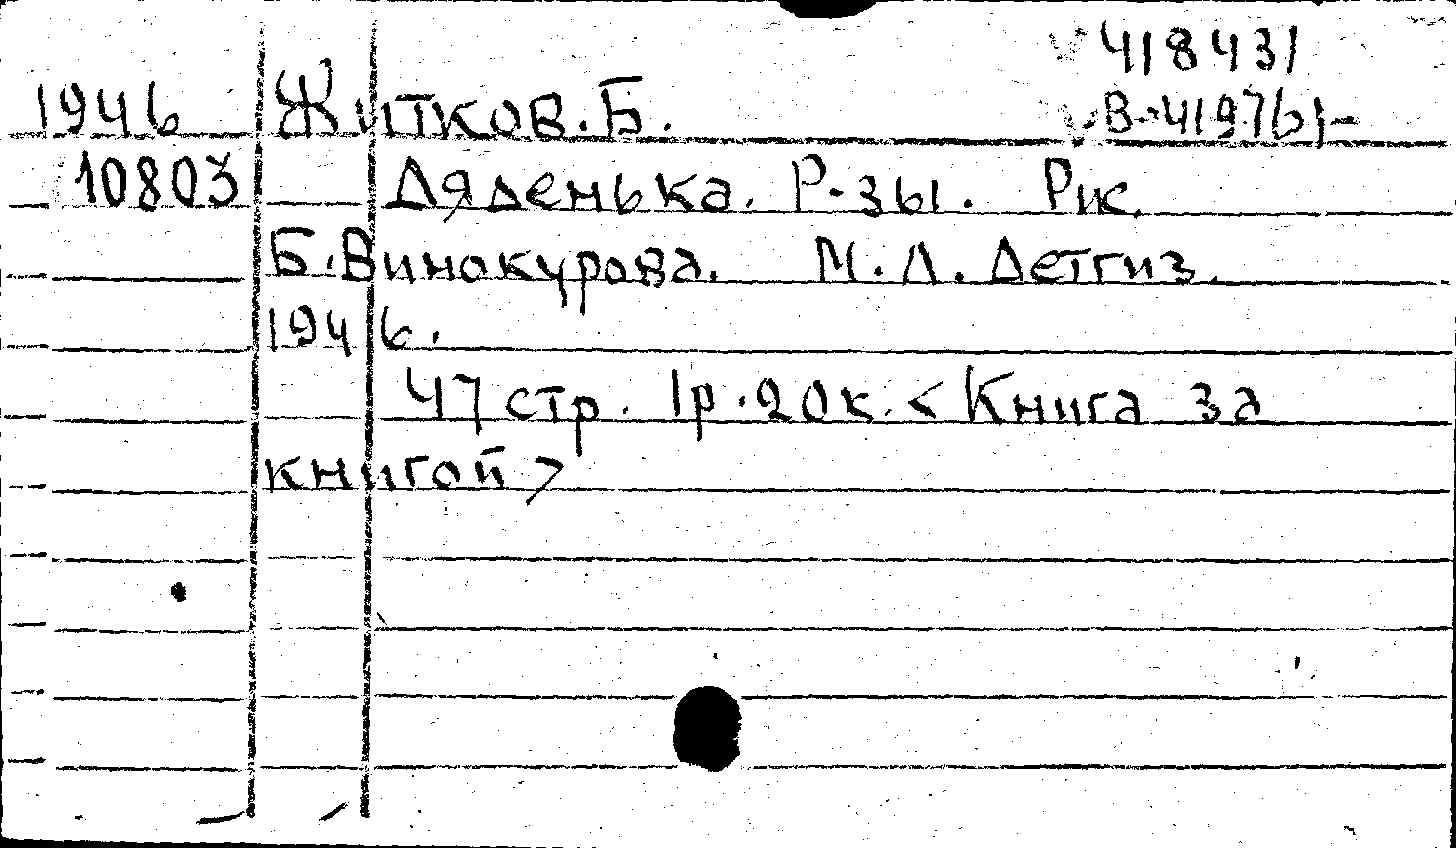 418431
1946 Житков. Б. В-41976/-
10803 Дяденька. Р-зы. Рис.
Б. Винокурова. М. Л. Детгиз.
1946.
47 стр. 1р. 20к. <Книга за
книгой>